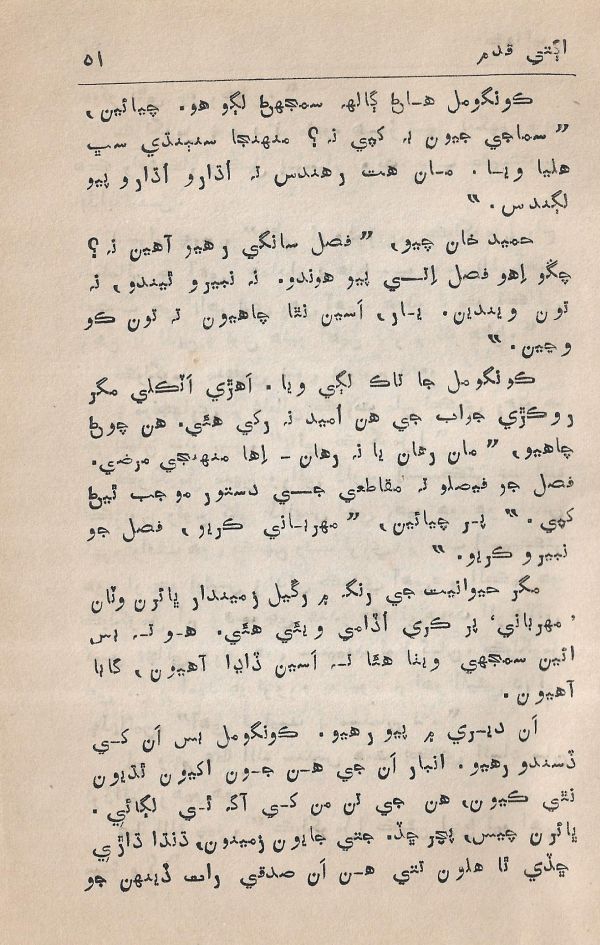 اڳتي قدم ۵۱
ڪونگومل هاڻ ڳالهہ سمجهڻ لڳو هو. چيائين،
”سماجي جيون بہ کپي نہ؟ منهنجا سنٻنڌي سڀ
هليا ويا. مان هت رهندس تہ اُڌارو اُڌارو پيو
لڳندس.“
حميد خان چيو، ”فصل سانگي رهيو آهين نہ؟
چڱو اِهو فصل اِتي پيو هوندو. نہ نبيرو ٿيندو، نہ
تون ويندين. يار، اَسين نٿا چاهيون تہ تون ڪو
وڃين.“
ڪونگومل جا ٿاڪ لڳي ويا. اَهڙي اَٽڪلي مگر
روکڙي جواب جي هن اُميد نہ رکي هئي. هن چوڻ
چاهيو، ”مان رهان يا نہ رهان - اِها منهنجي مرضي.
فصل جو فيصلو تہ مقاطعي جي دستور موجب ٿيڻ
کپي.“ پر چيائين، ”مهرباني ڪريو، فصل جو
نبيرو ڪريو.“
مگر حيوانيت جي رنگہ ۾ رڱيل زميندار ڀائرن وٽان
’مهرباني‘ پر ڪري اُڏامي ويئي هئي. هو تہ بس
ائين سمجهي ويٺا هئا تہ اَسين ڏاڍا آهيون، گابا
آهيون.
اَن ديري ۾ پيو رهيو. ڪونگومل بس اَن کي
ڏسندو رهيو. انبار اَن جي هن جون اکيون ٿڌيون
نٿي ڪيون، هن جي تن من کي آگہ ٿي لڳائي.
ڀائرن چيس، پچر ڇڏ. جتي جايون زمينون، ڌنڌا ڌاڙي
ڇڏي ٿا هلون تتي هن اَن صدقي رات ڏينهن جو